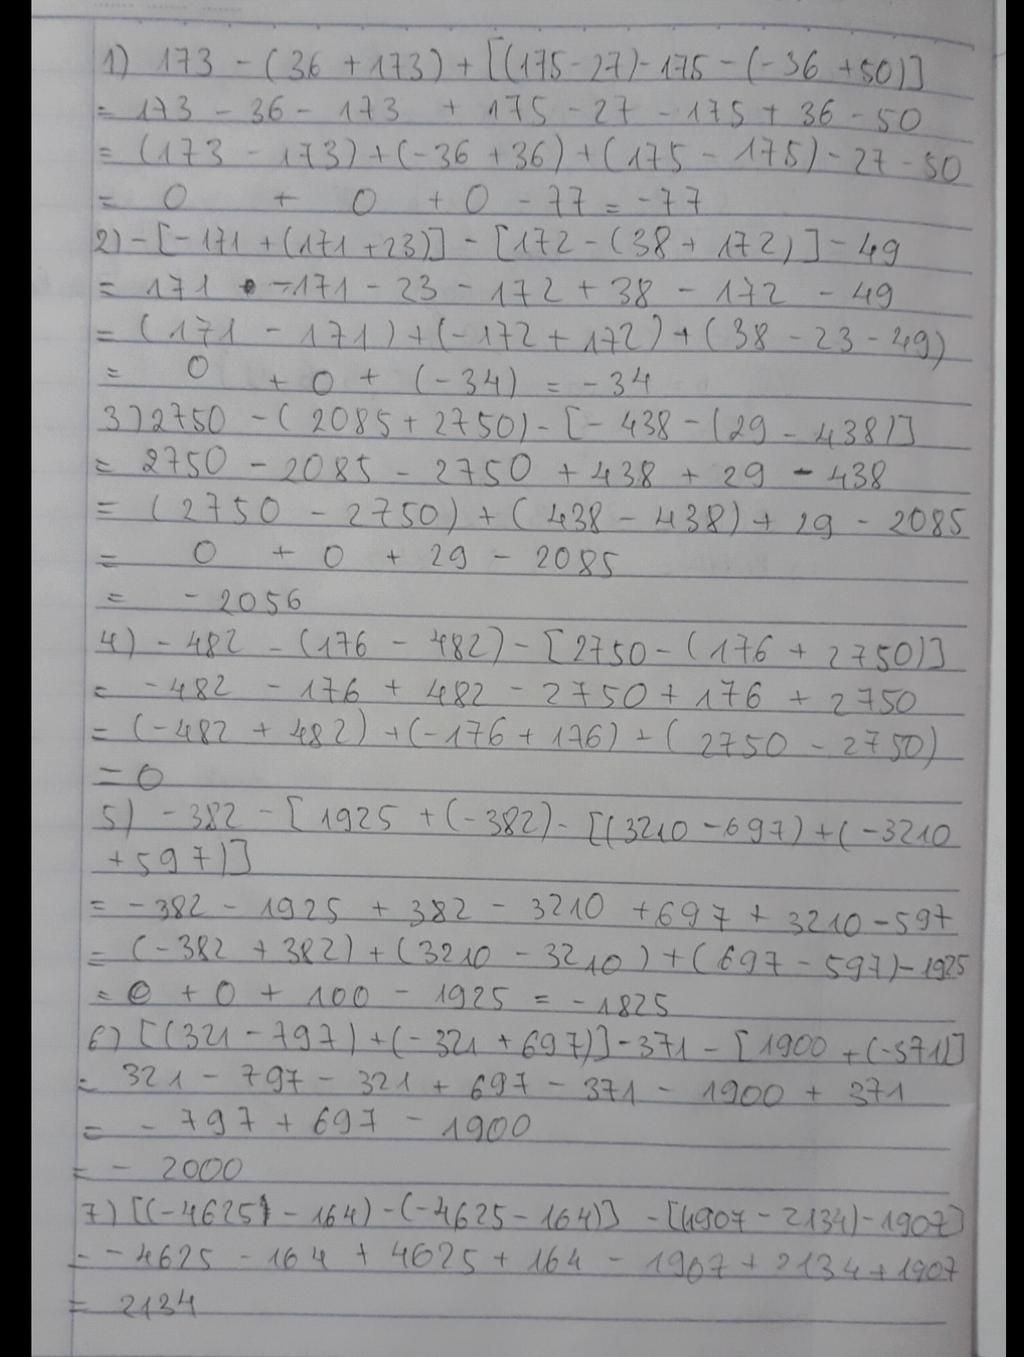 1) 173 - (36 + 173) + [(175 - 27) - 175 - (-36 + 50)]
= 173 - 36 - 173 + 175 - 27 - 175 + 36 - 50
= (173 - 173) + (-36 + 36) + (175 - 175) - 27 - 50
= 0 + 0 + 0 - 77 = -77
2) - [-171 + (171 + 23)] - [172 - (38 + 172)] - 49
= 171 - 171 - 23 - 172 + 38 - 172 - 49
= (171 - 171) + (-172 + 172) + (38 - 23 - 49)
= 0 + 0 + (-34) = -34
3) 2750 - (2085 + 2750) - [-438 - (29 - 438)]
= 2750 - 2085 - 2750 + 438 + 29 - 438
= (2750 - 2750) + (438 - 438) + 29 - 2085
= 0 + 0 + 29 - 2085
= - 2056
4) - 482 - (176 - 482) - [2750 - (176 + 2750)]
= -482 - 176 + 482 - 2750 + 176 + 2750
= (-482 + 482) + (-176 + 176) + (2750 - 2750)
= 0
5) - 382 - [1925 + (-382) - [(3210 - 697) + (-3210
+ 597)]
= -382 - 1925 + 382 - 3210 + 697 + 3210 - 597
= (-382 + 382) + (3210 - 3210) + (697 - 597) - 1925
= 0 + 0 + 100 - 1925 = -1825
6) [(321 - 797) + (-321 + 697)] - 371 - [1900 + (-371)]
= 321 - 797 - 321 + 697 - 371 - 1900 + 371
= - 797 + 697 - 1900
= - 2000
7) [(-4625) - 164) - (-4625 - 164)] - [1907 - 2134) - 1907]
= -4625 - 164 + 4625 + 164 - 1907 + 2134 + 1907
= 2134